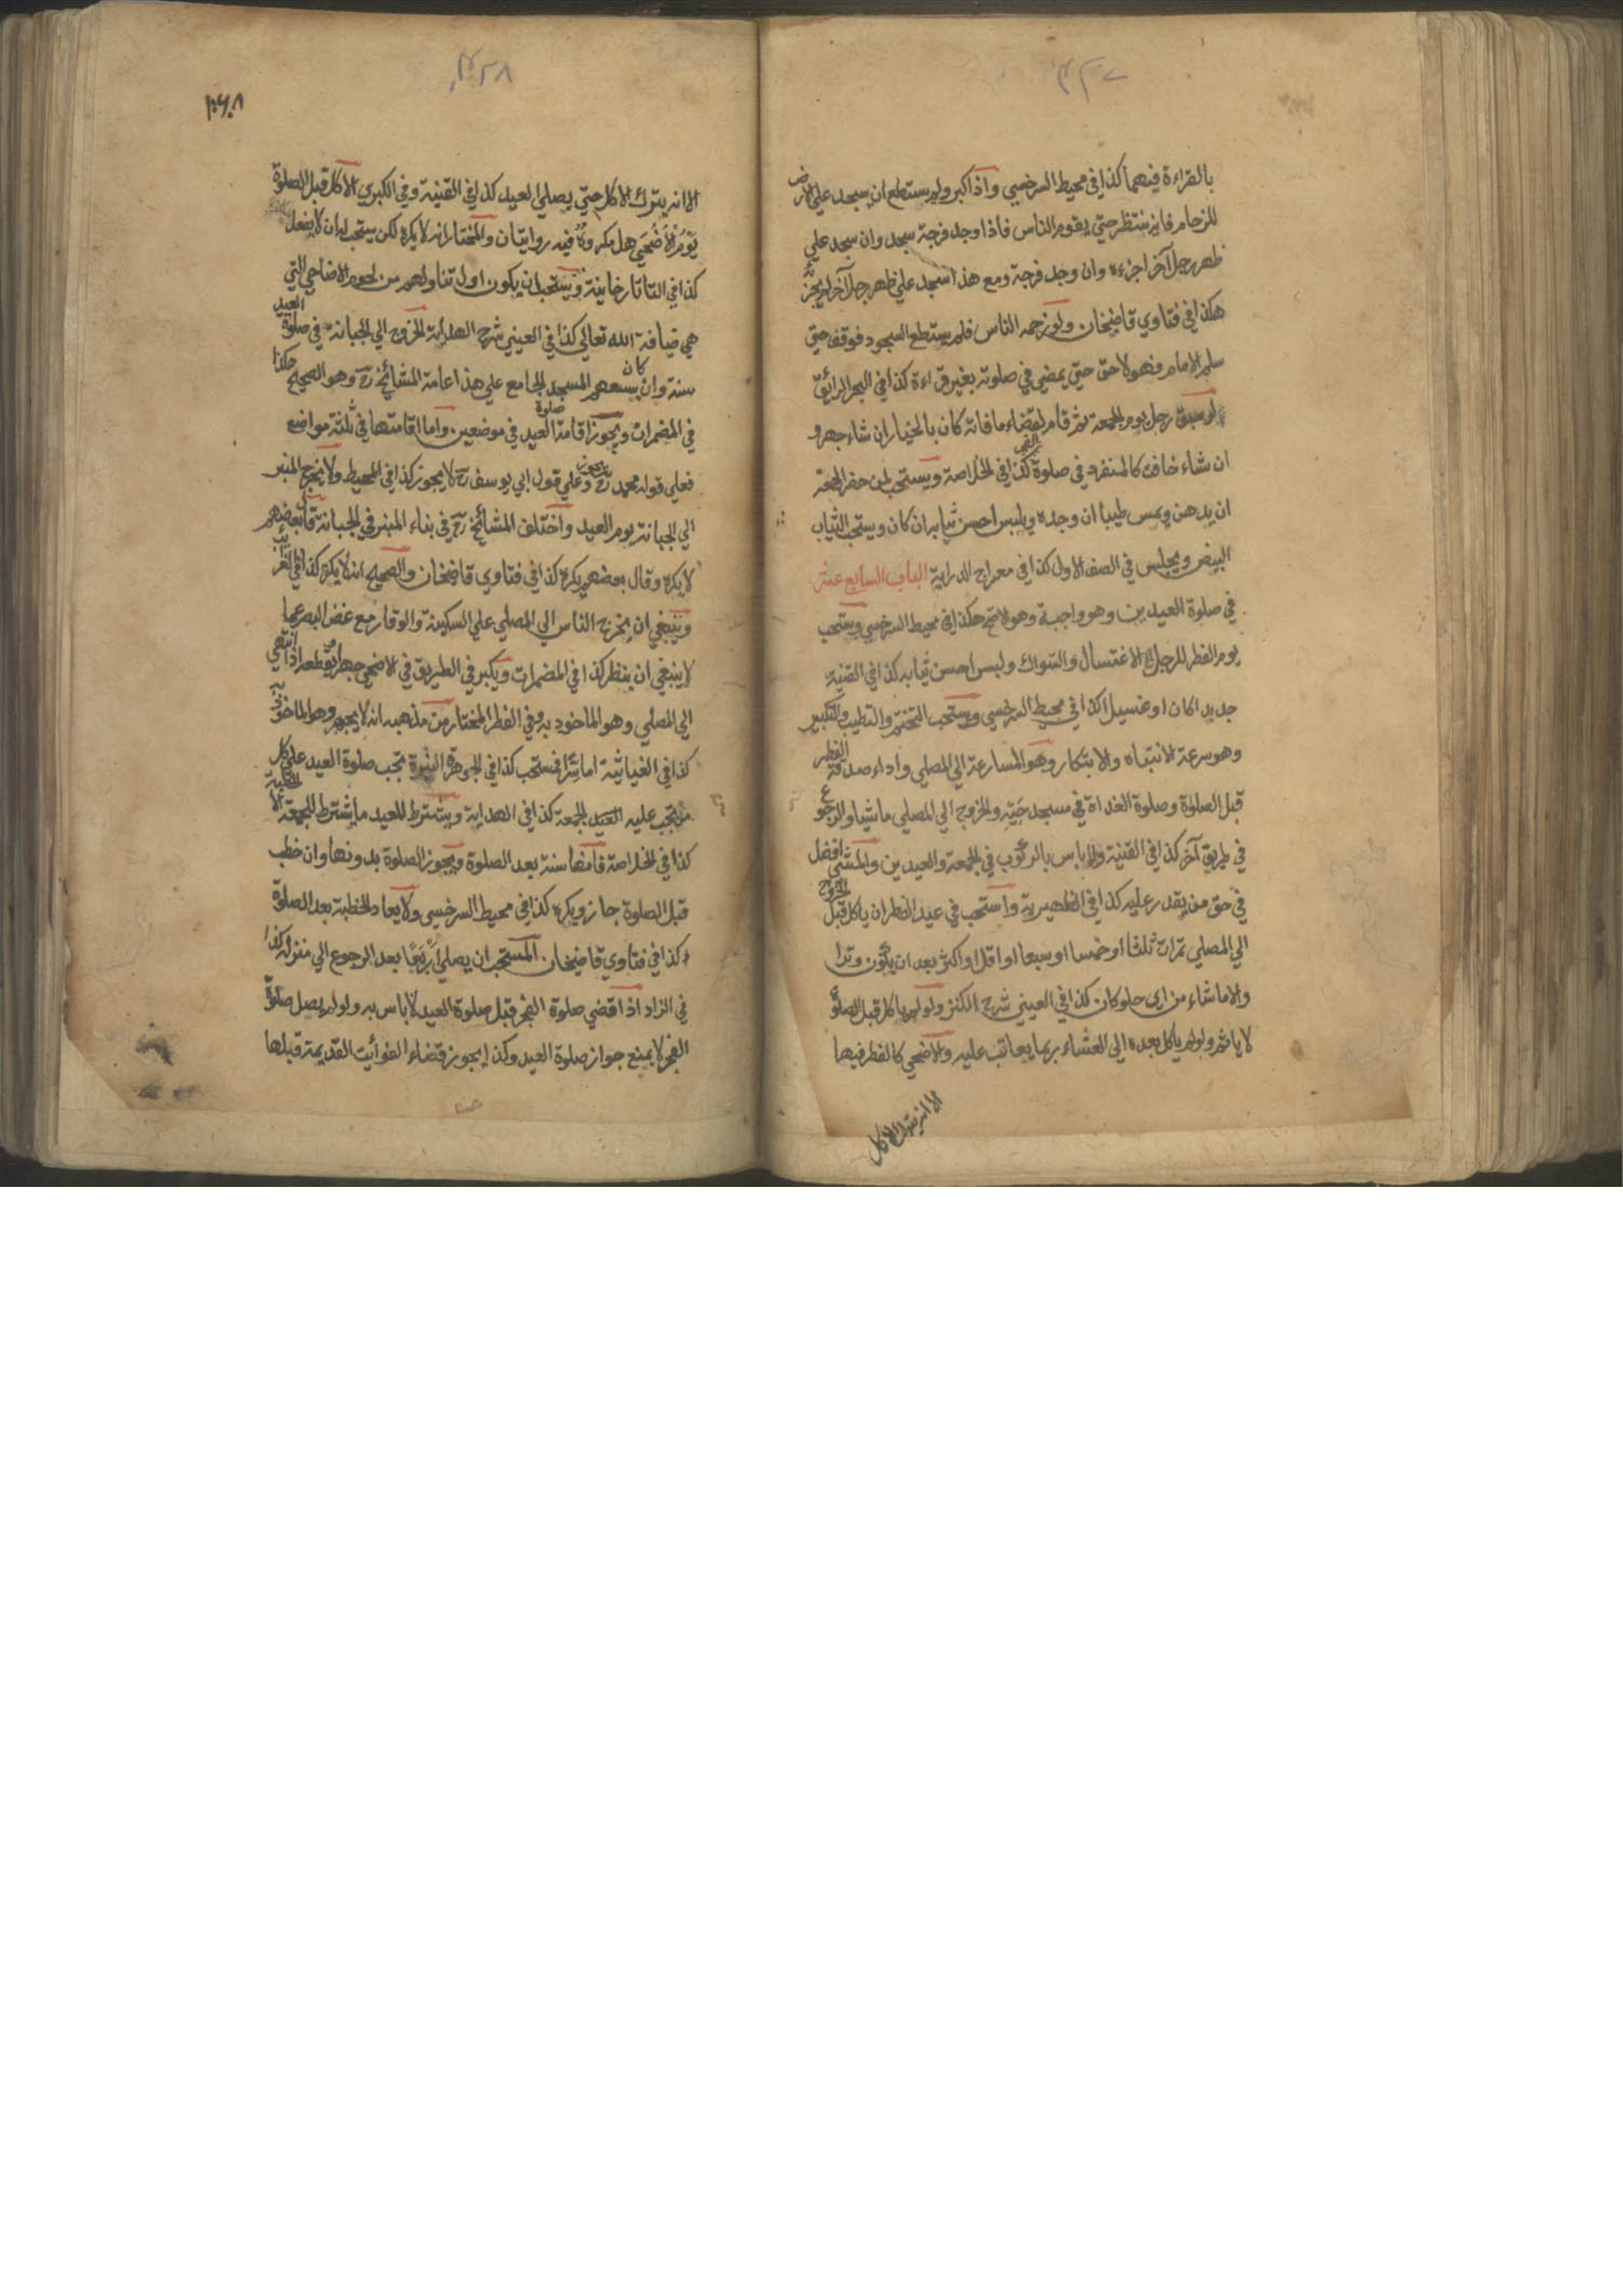 ٤٣٧
بالقراءة فيهما كذا في محيط السرخسي واذا كبر ولم يستطع ان يسجد علي الارض
للزحام فانه ينتظر حتي يقوم الناس فاذا وجد فرجة سجد وان سجد علي
ظهر رجل آخر اجزءه وان وجد فرجة ومع هذا سجد علي ظهر رجل آخر لم يجزئه
هكذا في فتاوي قاضيخان ولو زحمه الناس فلم يستطع السجود فوقف حتي
سلم الامام فهو لاحق حتي يمضي في صلوته بغير قراءة كذا في البحر الرائق
لو سبق رجل يوم الجمعة ثم قام لقضاء ما فاته كان بالخيار ان شاء جهر و
ان شاء خافت كالمنفرد في صلوة الفجر كذا في الخلاصة ويستحب لمن حضر الجمعة
ان يدهن ويمس طيبا ان وجده ويلبس احسن ثيابه ان كان ويستحب الثياب
البيض ويجلس في الصف الاول كذا في معراج الدراية الباب السابع عشر
في صلوة العيدين وهو واجبة وهو الاصح هكذا في محيط السرخسي ويستحب
يوم الفطر للرجل الاغتسال والسواك ولبس احسن ثيابه كذا في القنية
جديدا كان او غسيلا كذا في محيط السرخسي ويستحب التختم والتطيب والتكبير
وهو سرعة الانتباه والابتكار وهو المسارعة الي المصلي واداء صدقة الفطر
قبل الصلوة وصلوة الغداة في مسجد حيه والخروج الي المصلي ماشيا والرجوع
في طريق آخر كذا في القنية ولا باس بالركوب في الجمعة والعيدين والمشي افضل
في حق من يقدر عليه كذا في الظهيرية واستحب في عيد الفطر ان ياكل قبل الخروج
الي المصلي تمرات ثلثا او خمسا او سبعا او اقل او اكثر بعد ان يكون وترا
والا ما شاء من اي حلو كان كذا في العيني شرح الكنز ولو لم ياكل قبل الصلوة
لا ياثم ولو لم ياكل بعده الي العشاء ربما يعاتب عليه والاضحي كالفطر فيها
الا انه يترك الاكل
٤٣٨
الا انه يترك الاكل حتي يصلي العيد كذا في القنية وفي الكبري الاكل قبل الصلوة
يَوْمَ الاَضْحَي هل مكروه فيه روايتان والمختار انه لا يكره لكن يستحب له ان لا يفعل
كذا في التاتارخانية ويستحب ان يكون اول تناولهم من لحوم الاضاحي التي
هي ضيافة الله تعالي كذا في العيني شرح الهداية الخروج الي الجبانة في صلوة العيد
سنة وان كان يسعهم المسجد الجامع علي هذا عامة المشائخ رح وهو الصحيح هكذا
في المضمرات ويجوز اقامة صلوة العيد في موضعين واما اقامتها في ثلثة مواضع
فعلي قول محمد رح يجوز وعلي قول ابي يوسف رح لا يجوز كذا في المحيط ولا يخرج المنبر
الي الجبانة يوم العيد واختلف المشائخ رح في بناء المنبر في الجبانة قال بعضهم
لا يكره وقال بعضهم يكره كذا في فتاوي قاضيخان والصحيح انه لا يكره كذا في الغرائب
وينبغي ان يخرج الناس الي المصلي علي السكينة والوقار مع غض البصر عما
لا ينبغي ان ينظر كذا في المضمرات ويكبر في الطريق في الاضحي جهرا يقطعه اذا انتهي
الي المصلي وهو الماخوذ به وفي الفطر المختار من مذهبه انه لا يجهر وهو الماخوذ به
كذا في الغياثية اما سرا فمستحب كذا في الجوهرة النيرة تجب صلوة العيد علي كل
من تجب عليه الجمعة كذا في الهداية ويشترط للعيد ما يشترط للجمعة الا الخطبة
كذا في الخلاصة فانها سنة بعد الصلوة ويجوز الصلوة بدونها وان خطب
قبل الصلوة جاز ويكره كذا في محيط السرخسي ولا يعاد الخطبة بعد الصلوة
كذا في فتاوي قاضيخان المستحب ان يصلي اربعا بعد الرجوع الي منزله كذا
في الزاد اذا قضي صلوة الفجر قبل صلوة العيد لا باس به ولو لم يصل صلوة
الفجر لا يمنع جواز صلوة العيد وكذا يجوز قضاء الفوائت القديمة قبلها